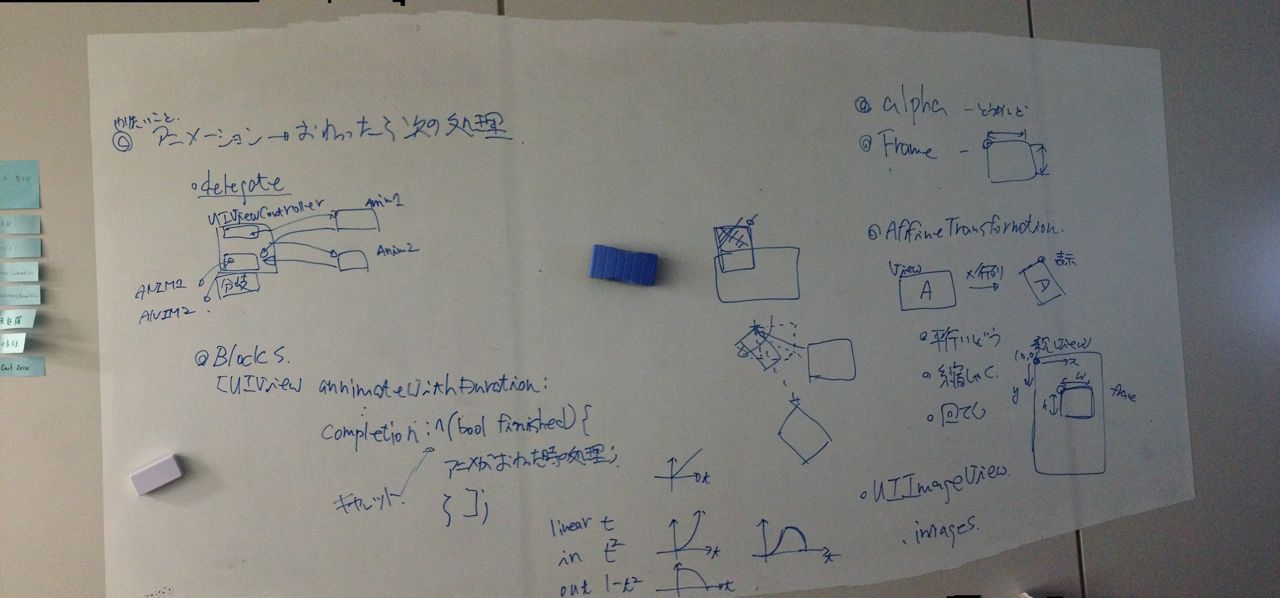 やりたいこと
◎ アニメーション→おわったら次の処理
○delegate
UIViewController
Anim1
Anim2
ANIM1
ANIM2
分岐
◎Blocks.
[UIView annimateWithDuration:
completion:^(bool finished){
アニメがおわった時の処理;
キャレット
}];
linear t
in t²
out 1-t²
t
t
t
t
◎ alpha -とうめいど
◎ Frame -
◎ AffineTransformation.
View
A
x行列
表示
A
○平行いどう
○縮しゃく
○回てん
親View
(0,0)
x
y
w
h
frame
○UIImageView.
.images.